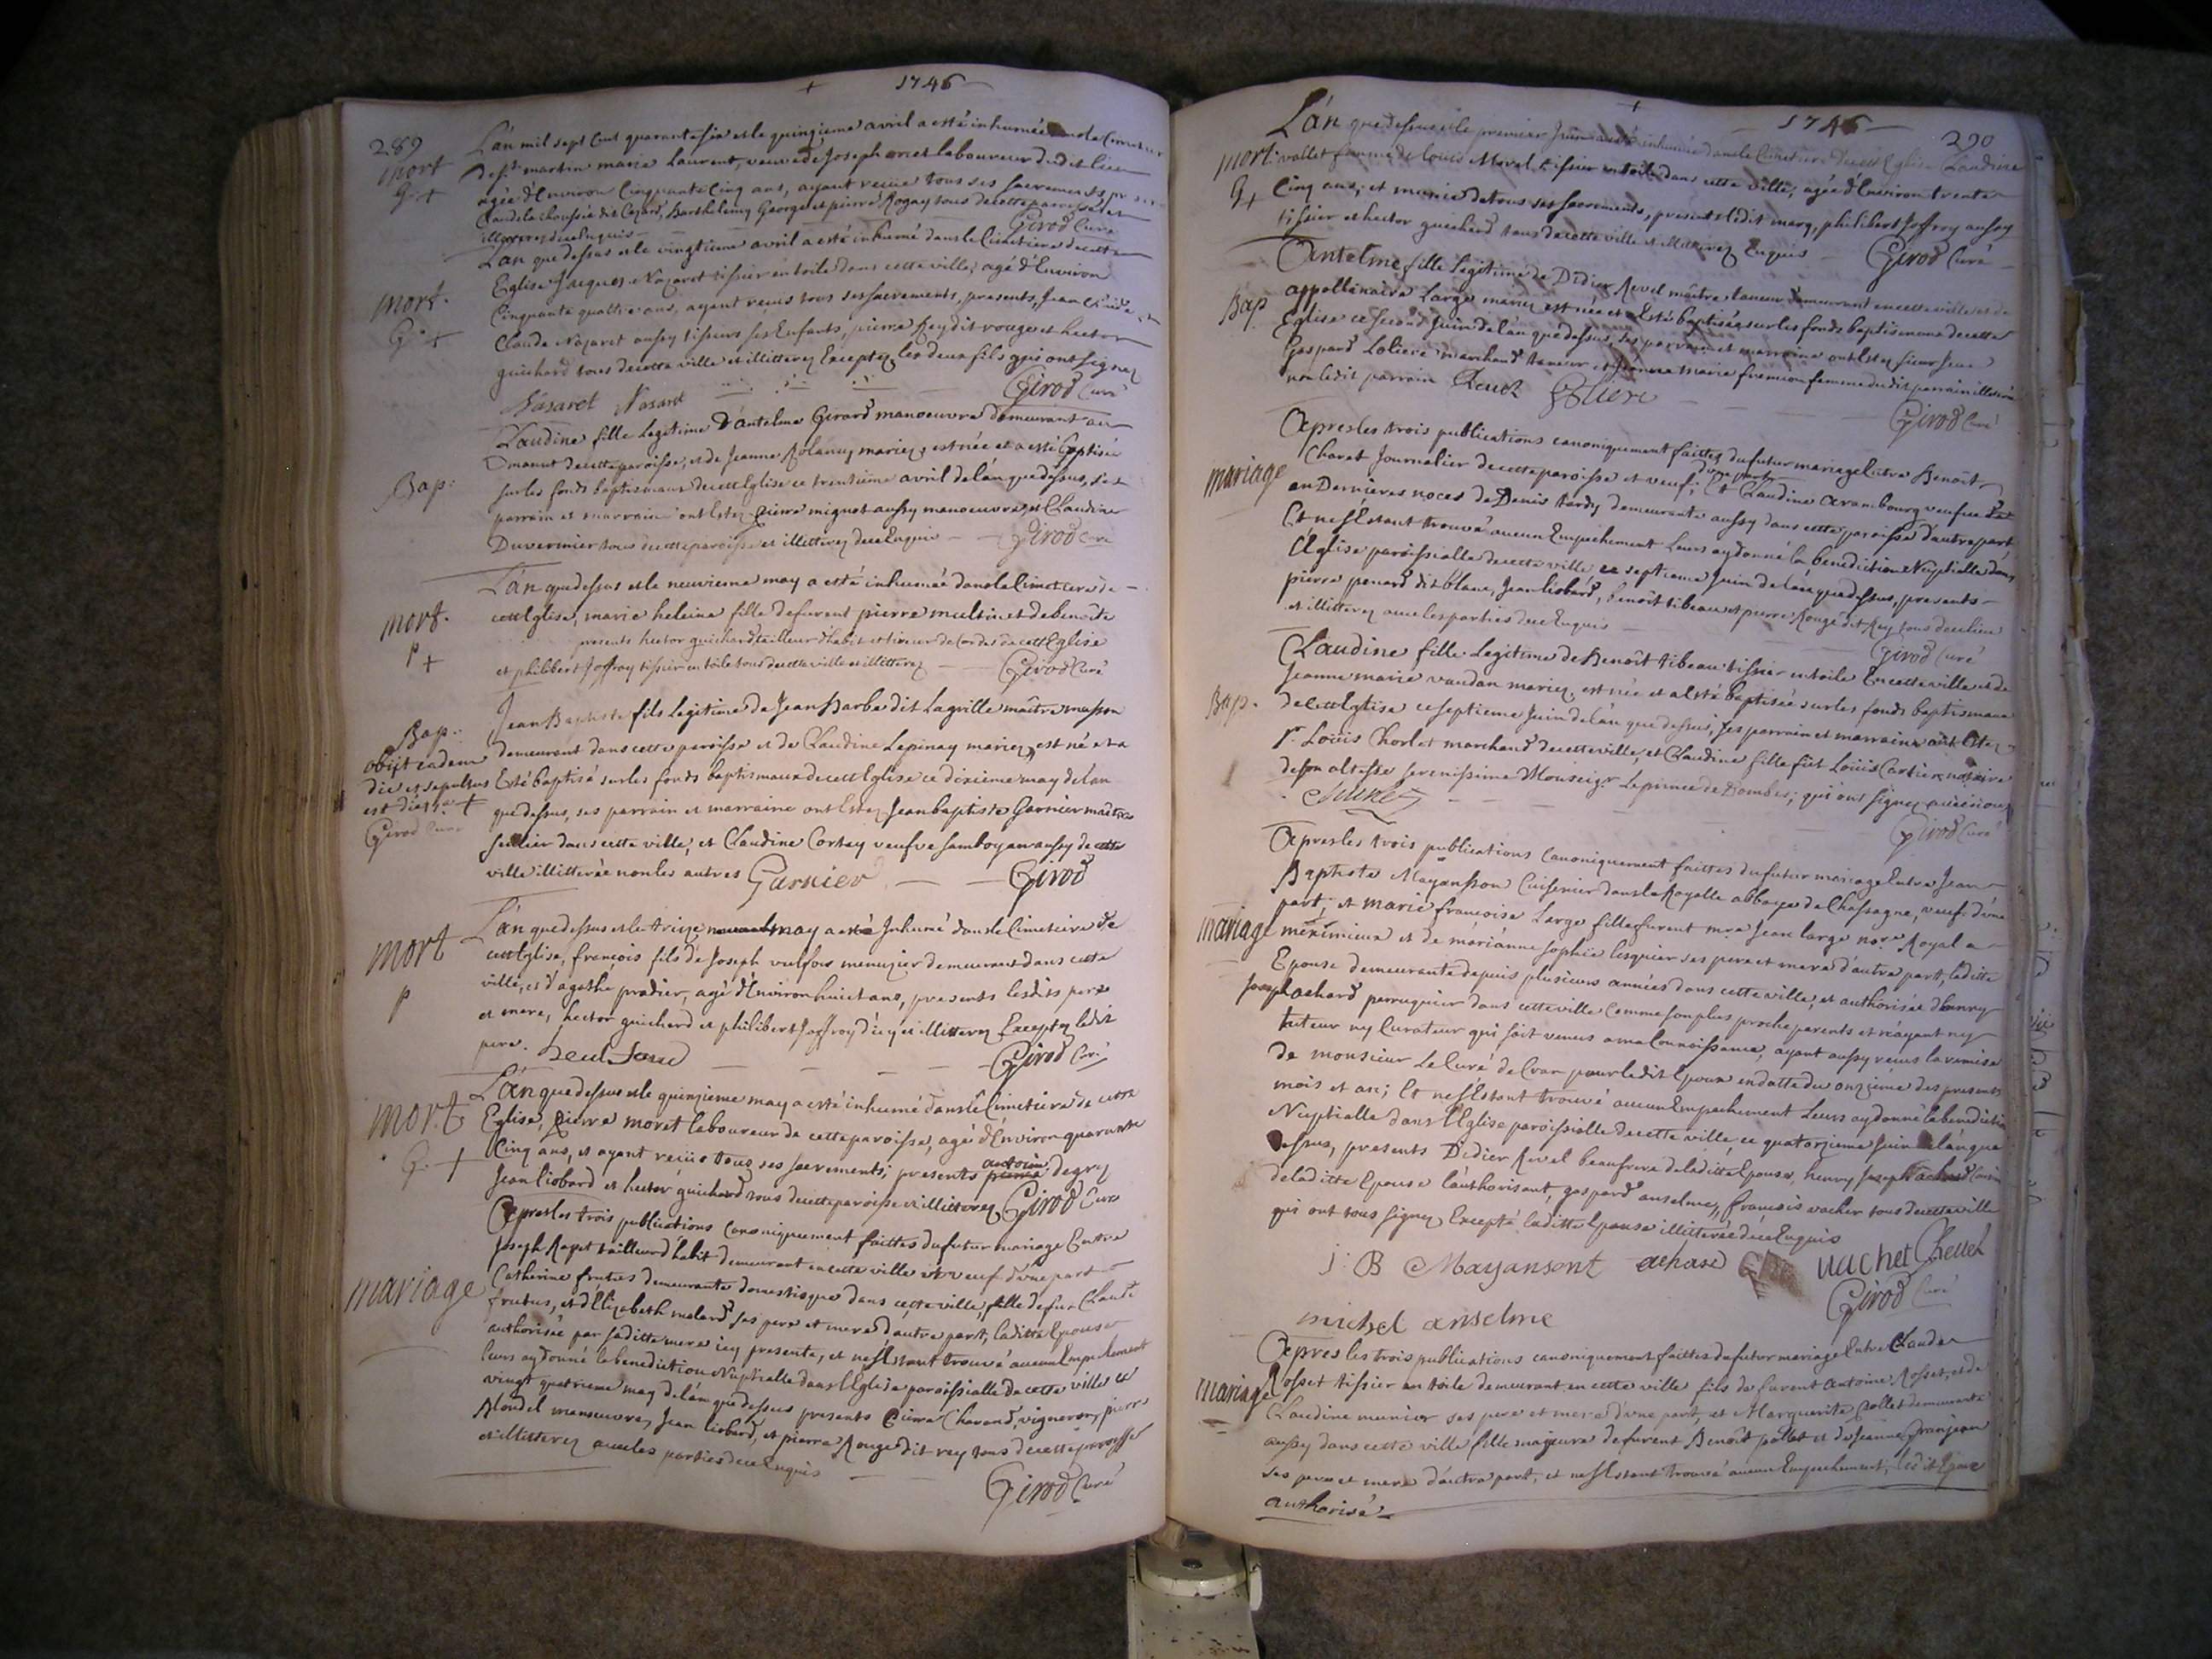 + 1746
289
L'an mil sept Cent quarante six et le quinzieme avril a esté inhumée dans le Cimetiere
mort
de st martin marie Laurent, veuve de Joseph laboureur dudit lieu
G +
agée d'Environ Cinquante Cinq ans, ayant reçüe tous ses sacrements,
Claude la chaussée dit Cezard, Barthelemy George et pierre Rogay tous de cette paroisse et
illitterez de ce Enquis — Girod Curé
L'an que dessus et le vingtieme avril a esté inhumé dans le Cimetiere de cette
Eglise Jacques Nazaret tissier en toile dans cette ville, agé d'Environ
mort.
Cinquante quattre ans, ayant reçus tous ses sacrements, presents, Jean
G +
Claude Nazaret aussy tissiers ses Enfants, pierre Rey dit rouge et hector
guichard tous de cette ville et illitterez Exceptez les deux fils qui ont signez
Nasaret Nasaret Girod Curé
Claudine fille Legitime D'antelme Girard manoeuvre demeurant au
manut de cette paroisse, et de Jeanne Rolancy mariez, est née et a esté Baptisée
Bap:
sur les fonds baptismaux de cette Eglise ce trentieme avril de l'an que dessus, ses
parrain et marraine ont Estez pierre mignot aussy manoeuvre, et Claudine
Duvernier tous de cette paroisse et illitterez de ce Enquis — Girod Curé
L'an que dessus et le neuvieme may a esté inhumée dans le Cimetiere de
mort.
cette Eglise, marie heleine fille de furent pierre multin et de benoite
p +
presents hector guichard tailleur d'habit et tireur de Cordes de cette Eglise
et philibert Joffray tissier en toile tous de cette ville et illitterez — Girod Curé
Jean Baptiste fils Legitime de Jean Barbe dit Lagrille maître masson
Bap:
demeurant dans cette paroisse et de Claudine Lepinay mariez, est né et a
obijt eadem
Esté baptisé sur les fonds baptismaux de cette Eglise ce dixieme may de l'an
die et sepultus
est die +
Girod Curé
que dessus, ses parrain et marraine ont Estez Jean baptiste Garnier maître
sellier dans cette ville, et Claudine Cortay veufve Samboyan aussy de cette
ville illitterée non les autres Garnier — Girod
L'an que dessus et le treize may a esté Inhumé dans le Cimetiere de
mort
cette Eglise, francois fils de Joseph menuzier demeurant dans cette
p
ville, et d'agathe pradier, agé d'Environ huict ans, presents lesdits pere
et mere, hector guichard et philibert Joffroy d'icy et illitterez Exceptez ledit
pere. Girod Curé
L'an que dessus et le quinzieme may a esté inhumé dans le Cimetiere de cette
mort
Eglise, pierre moret laboureur de cette paroisse, agé d'Environ quarante
G. +
Cinq ans, et ayant reçüe tous ses sacrements; presents antoine degry
Jean liobard et hector guichard tous de cette paroisse et illitterez Girod Curé
Apres les trois publications Canoniquement faittes du futur mariage Entre
Joseph Rapet tailleur d'habit demeurant en cette ville et veuf d'une part
mariage
Catherine frutus demeurante domestique dans cette ville, fille de fut Claude
frutus, et d'Elizabeth malard ses pere et mere d'autre part, laditte Epouse
authorisée par saditte mere icy presente, et ne s'Estant trouvé aucun Empechement
leurs ay donné la benediction Nuptialle dans l'Eglise paroissialle de cette ville ce
vingt quatrieme may de l'an que dessus presents pierre Chavand, vigneron, pierre
Blondel manoeuvre, Jean liobard, et pierre Rouge dit rey tous de cette paroisse
et illitterez avec les parties de ce Enquis
Girod Curé
+ 1746
290
L'an que dessus et le premier Juin a esté inhumée dans le Cimetiere de cette Eglise Claudine
mort.
vallet femme de Louis Morel tissier en toile dans cette ville, agée d'Environ trente
G +
Cinq ans, et munie de tous ses sacrements, presents ledit marq, philibert Joffroy aussy
tissier et hector guichard tous de cette ville et illitterez Enquis — Girod Curé
Antelme fille Legitime de Didier Revel maître taneur demeurant en cette ville et de
Bap
appollinaire Large mariez est née et a Esté baptisée sur les fonds baptismaux de cette
Eglise ce second Juin de l'an que dessus, ses parrain et marraine ont Estez sieur Jean
Gaspard Loliere marchand taneur et Jeanne marie fremion femme dudit parrain illiterée
non ledit parrain Girod Curé
Apres les trois publications canoniquement faittes du futur mariage Entre Benoît
Charat Journalier de cette paroisse et veuf, d'une part, Et Claudine Arambourg veufve
mariage
en Dernieres noces de Denis tardy demeurante aussy dans cette paroisse d'autre part
Et ne s'Estant trouvé aucun Empechement Leurs ay donné la benediction Nuptialle dans
l'Eglise paroissialle de cette ville ce septieme Juin de l'an que dessus, presents
pierre penard dit blanc, Jean liobard, benoît tibeau et pierre Rouge dit Rey tous de ce lieu
et illitterez avec les parties de ce Enquis
Girod Curé
Claudine fille Legitime de Benoît tibeau tissier en toile En cette ville et de
Jeanne marie vaudan mariez, est née et a Esté baptisée sur les fonds baptismaux
Bap.
de cette Eglise ce septieme Juin de l'an que dessus, ses parrain et marraine ont Estez
sr. Loüis Chorlet marchand de cette ville, et Claudine fille fût Loüis Cartier notaire
de son altesse serenissime Monseigr. Le prince de Dombes; qui ont signez
Girod Curé
Apres les trois publications Canoniquement faittes du futur mariage Entre Jean
Baptiste Mayansson Cuisenier dans la Royalle abbaye de Chassagne, veuf d'une
part, et marie francoise Large fille furent mre Jean large nore Royal a
mariage
meximieux et de marianne sophie lesquier ses pere et mere d'autre part, laditte
Epouse demeurante depuis plusieurs années dans cette ville, et authorisée d'henry
Joseph achard perruquier dans cette ville Comme son plus proche parents et n'ayant ny
tuteur ny Curateur qui soit venus a ma Connoissance, ayant aussy reçus la remise
de monsieur Le Curé de Cran pour ledit Epoux en datte du onzieme des presents
mois et an; Et ne s'Estant trouvé aucun Empechement Leurs ay donné la benediction
Nuptialle dans l'Eglise paroissialle de cette ville, ce quatorzieme Juin de l'an que
dessus, presents Didier Revel beaufrere de laditte Epouse, henry Joseph achard Cousin
de laditte Epouse l'authorisant, gaspard anselme, francois vacher tous de cette ville
qui ont tous signez Excepté laditte Epouse illitterée de ce Enquis
J. B Mayansont achard vachet
Girod Curé
michel anselme
Apres les trois publications canoniquement faittes du futur mariage Entre Claude
Rosset tissier en toile demeurant en cette ville fils de furent Antoine Rosset, et de
mariage
Claudine munier ses pere et mere d'une part, et Marguerite pollet demeurante
aussy dans cette ville fille majeure de furent Benoît pollet et de Jeanne Granjean
ses pere et mere d'autre part, et ne s'Estant trouvé aucun Empechement, ledit Epoux
authorisé